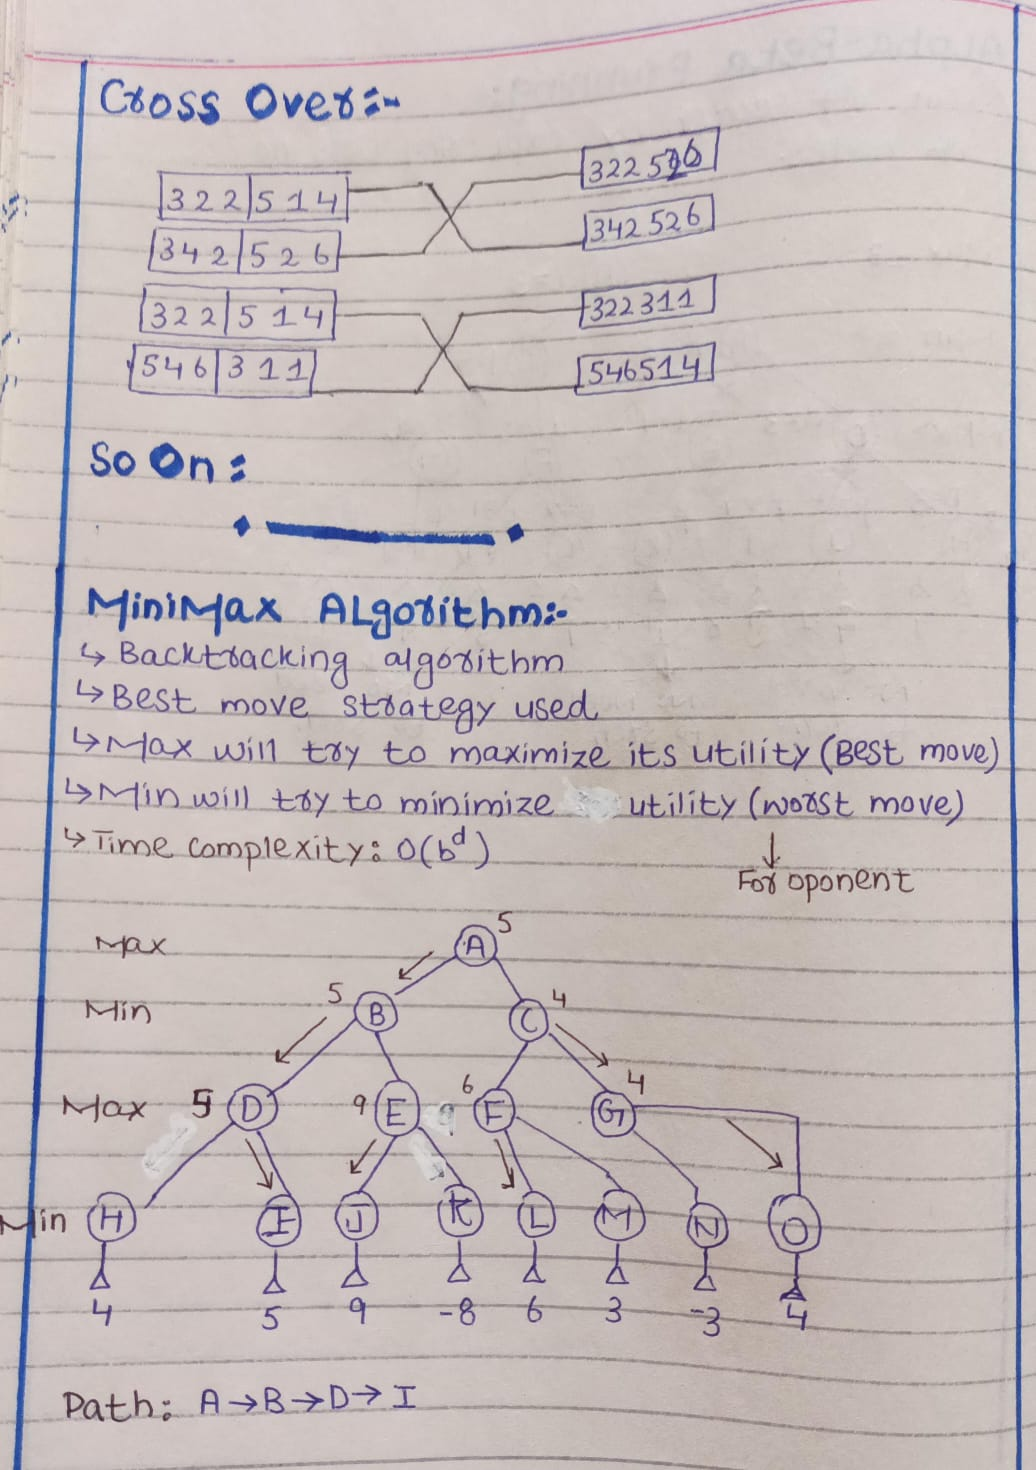 Cross Over:-
322 514 322526
342 526 342526
322 514 322311
546 311 546514
So On:
MiniMax ALgorithm:-
↳ Backtracking algorithm
↳ Best move strategy used
↳ Max will try to maximize its utility (Best move)
↳ Min will try to minimize utility (worst move)
↳ Time complexity: O(b^d) ↓
For oponent
Max A 5
Min 5 B C 4
Max 5 D 9 E 6 F G 4
Min H I J K L M N O
4 5 9 -8 6 3 -3 4
Path: A → B → D → I